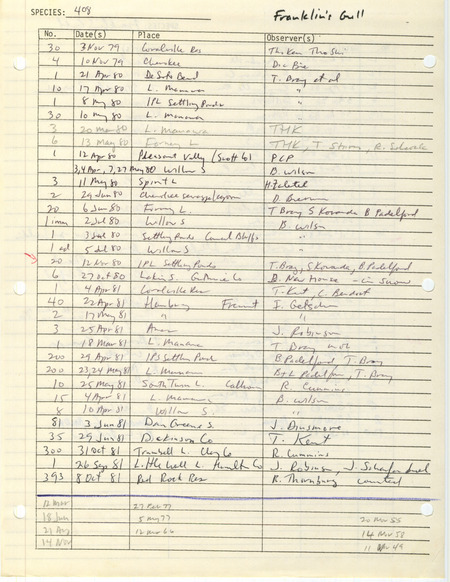 SPECIES: 408 Franklin's Gull
No. Date(s) Place Observer(s)
30 3 Nov 79 Coralville Res T.H. Kent
4 10 Nov 79 Cherokee Dic Bie
1 21 Apr 80 De Soto Bend T. Bray et al
10 17 Apr 80 L. Manawa "
1 8 May 80 IPL Settling Ponds "
30 10 May 80 L. Manawa
3 20 Mar 80 L. Manawa THK
6 13 May 80 Forney L THK, T
1 12 Apr 80 Pleasant Valley (Scott Co) PCP
3,4 Apr, 7,27 May 80 Willow S B. Wilson
3 11 May 80 Spirit L H. Zaletel
2 29 Jun 80 Cherokee sewage lagoon D. Bierman
20 6 Jun 80 Forney L. T Bray S Kovanda B Padelford
1 imm 2 Jul 80 Willow S B. Wilson
1 3 Jul 80 Settling Ponds Council Bluffs "
1 ad 5 Jul 80 Willow S "
20 12 Nov 80 IPL Settling Ponds T. Bray, S Kovanda, B Padelford
6 27 Oct 80 Lakin S. Guthrie Co B. New House - in snow
1 4 Apr 81 Coralville Res T. Kent, C. Bendorf
40 22 Apr 81 Hamburg Fremont I. Getscher
2 17 May 81 " "
3 25 Apr 81 Ames J. Robinson
1 18 Mar 81 L. Manawa T Bray
200 29 Apr 81 IPS Settling Pond B Padelford, T. Bray
200 23,24 May 81 L. Manawa B+L Padelford, T. Bray
10 25 May 81 South Twin L. Calhoun R Cummins
15 4 Apr 81 L. Manawa B. Wilson
8 10 Apr 81 Willow S. "
81 3 Jun 81 Dan Greene S. J. Dinsmore
35 29 Jun 81 Dickinson Co T. Kent
300 31 Oct 81 Trumbull L. Clay Co R. Cummins
1 26 Sep 81 Little Wall L. Hamilton Co J. Robinson, J. Schaufenbuel
393 8 Oct 81 Red Rock Res R. Thornburg counted
12 Mar 27 Feb 77
18 Jun 5 May 77 20 Nov 55
21 Apr 12 Mar 66 14 Nov 58
14 Nov 11 Nov 49